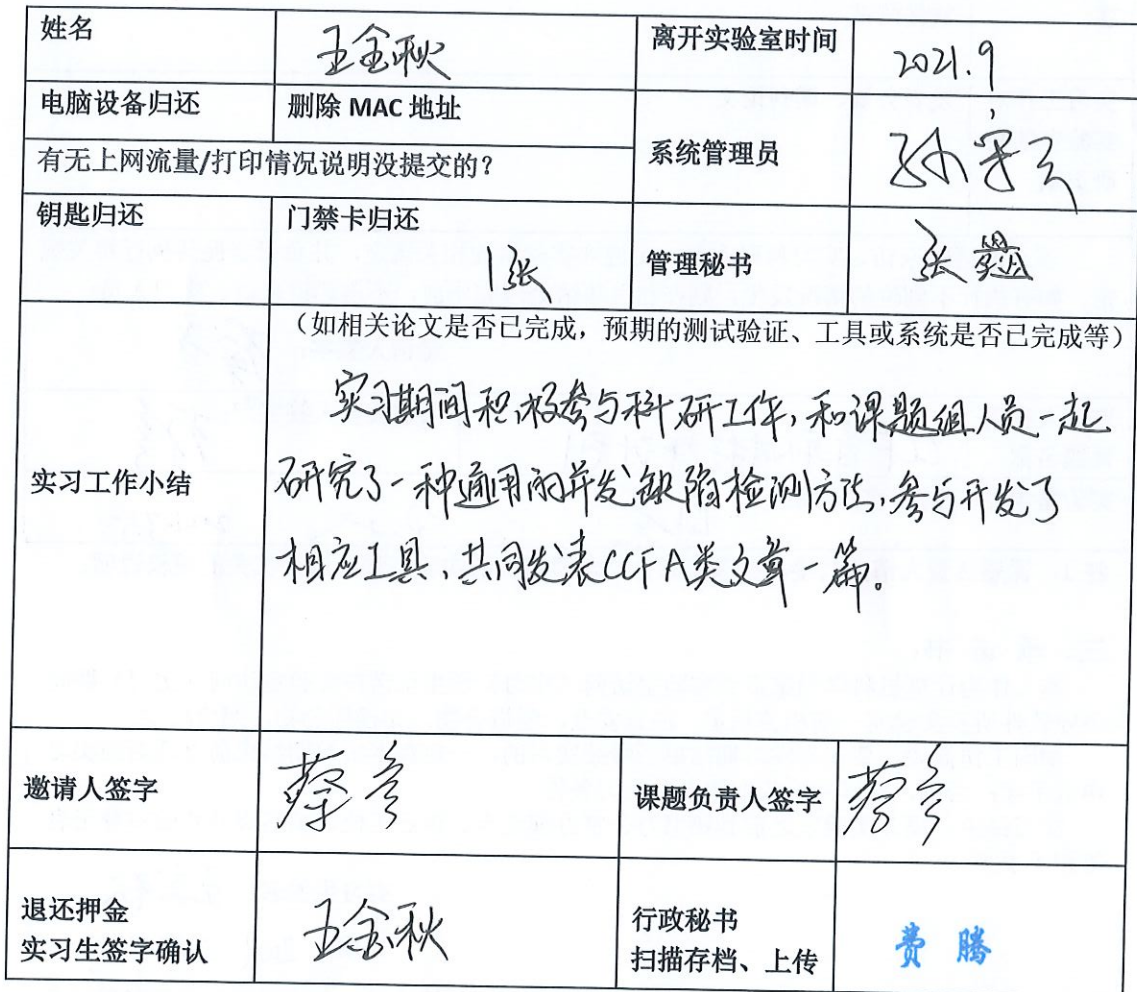 姓名 王金秋 离开实验室时间 2021.9
电脑设备归还 删除 MAC 地址
有无上网流量/打印情况说明没提交的? 系统管理员 孙守云
钥匙归还 门禁卡归还
1张 管理秘书 张
(如相关论文是否已完成,预期的测试验证、工具或系统是否已完成等)
实习期间积极参与科研工作,和课题组人员一起
实习工作小结 研究了一种通用的并发缺陷检测方法,参与开发了
相应工具、共同发表CCF A类文章一篇。
邀请人签字 蔡彦 课题负责人签字 蔡彦
退还押金
实习生签字确认 王金秋 行政秘书
扫描存档、上传 费腾